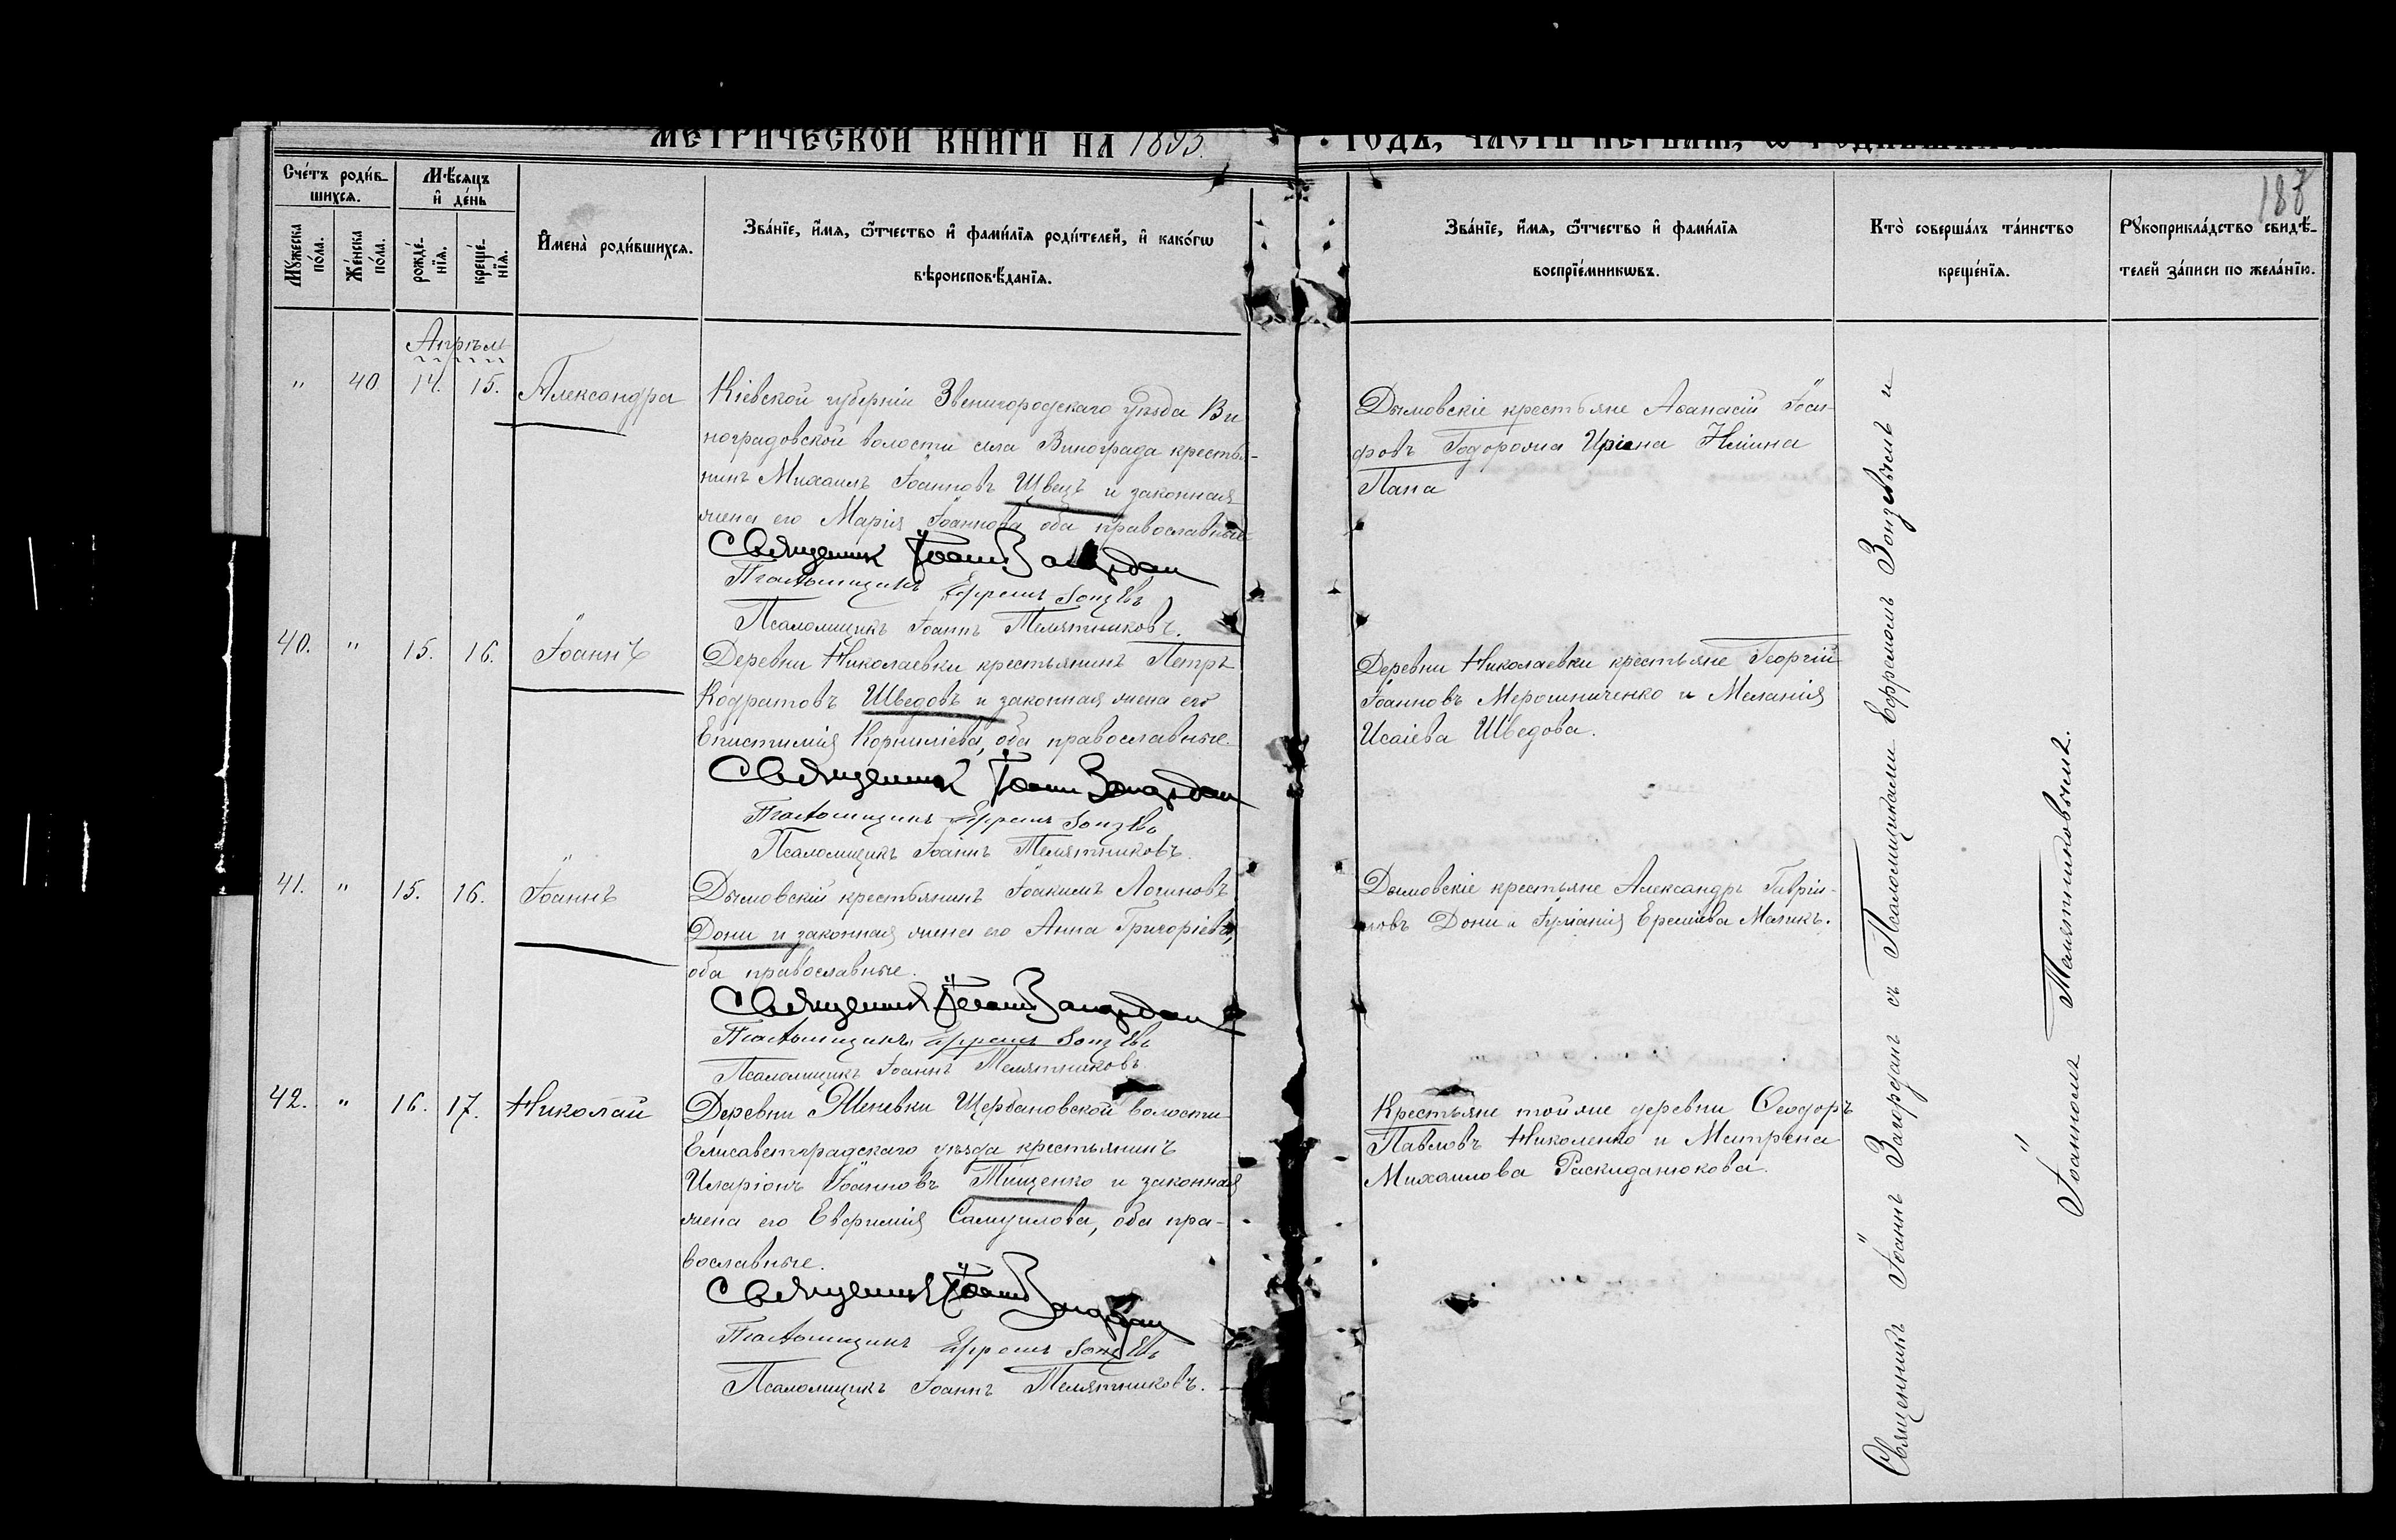 МЕТРИЧЕСКОЙ КНИГИ НА 1893.
ГОДЪ, ЧАСТЬ ПЕРВАЯ, Ѡ РОДИВШИХСЯ
187
Сче́тъ роди́в-
шихся.
Мѣ́сяцъ
и҆ де́нь
Мꙋ́жеска
по́ла.
Же́нска
по́ла.
рожде́-
нїя.
креще́-
нїя.
И҆мена̀ роди́вшихся.
Зва́нїе, и҆́мя, ѻ҆́тчество и҆ фами́лїя роди́телей, и҆ како́гѡ
вѣроисповѣ́данїя.
Зва́нїе, и҆́мя, ѻ҆́тчество и҆ фами́лїя
воспрїе́мникѡвъ.
Кто̀ соверша́лъ та́инство
креще́нїя.
Рꙋкоприкла́дство свидѣ́-
телей за́писи по жела́нїю.
Апрѣль
" 40 14. 15. Александра
Кіевской губерніи Звенигородскаго уѣзда Ви
ноградовской волости села Винограда крестья-
нинъ Михаилъ Іоанновъ Швецъ и законная
жена его Марія Іоаннова оба православные
Священник Іоанн Загордан
Псаломщикъ Ефремъ Зонзевъ
Псаломщикъ Іоаннъ Телятниковъ.
Дымовскіе крестьяне Аѳанасій Іоси-
фовъ Тодорожа Ирина
Папа
40. " 15. 16. Іоаннъ
Деревни Николаевки крестьянинъ Петръ
Кодратовъ Шведовъ и законная жена его
Епистимія Корниліева, оба православные.
Священник Іоанн Загордан
Псаломщикъ Ефремъ Зонзевъ
Псаломщикъ Іоаннъ Телятниковъ.
Деревни Николаевки крестьяне Георгій
Іоанновъ Мерошниченко и Меланія
Исаіева Шведова.
41. " 15. 16. Іоаннъ
Дымовскій крестьянинъ Іоакимъ Логиновъ
Дони и законная жена его Анна Григоріева,
оба православные.
Священник Іоанн Загордан
Псаломщикъ Ефремъ Зонзевъ
Псаломщикъ Іоаннъ Телятниковъ
Дымовскіе крестьяне Александръ Гавріи-
ловъ Дони и Іуліанія Ереміева Маликъ.
42. " 16. 17. Николай
Деревни Щербановской волости
Елисаветградскаго уѣзда крестьянинъ
Иларіонъ Іоанновъ Тищенко и законная
жена его Евфимія Самуилова, оба пра-
вославные.
Священник Іоанн Загордан
Псаломщикъ Ефремъ Зонзевъ
Псаломщикъ Іоаннъ Телятниковъ.
Крестьяне той же деревни Ѳеодоръ
Павловъ Николенко и Матрена
Михаилова Раскиданюкова.
Священникъ Іоаннъ Загорданъ съ Псаломщиками Ефремомъ Зонзевымъ и
Іоанномъ Телятниковымъ.